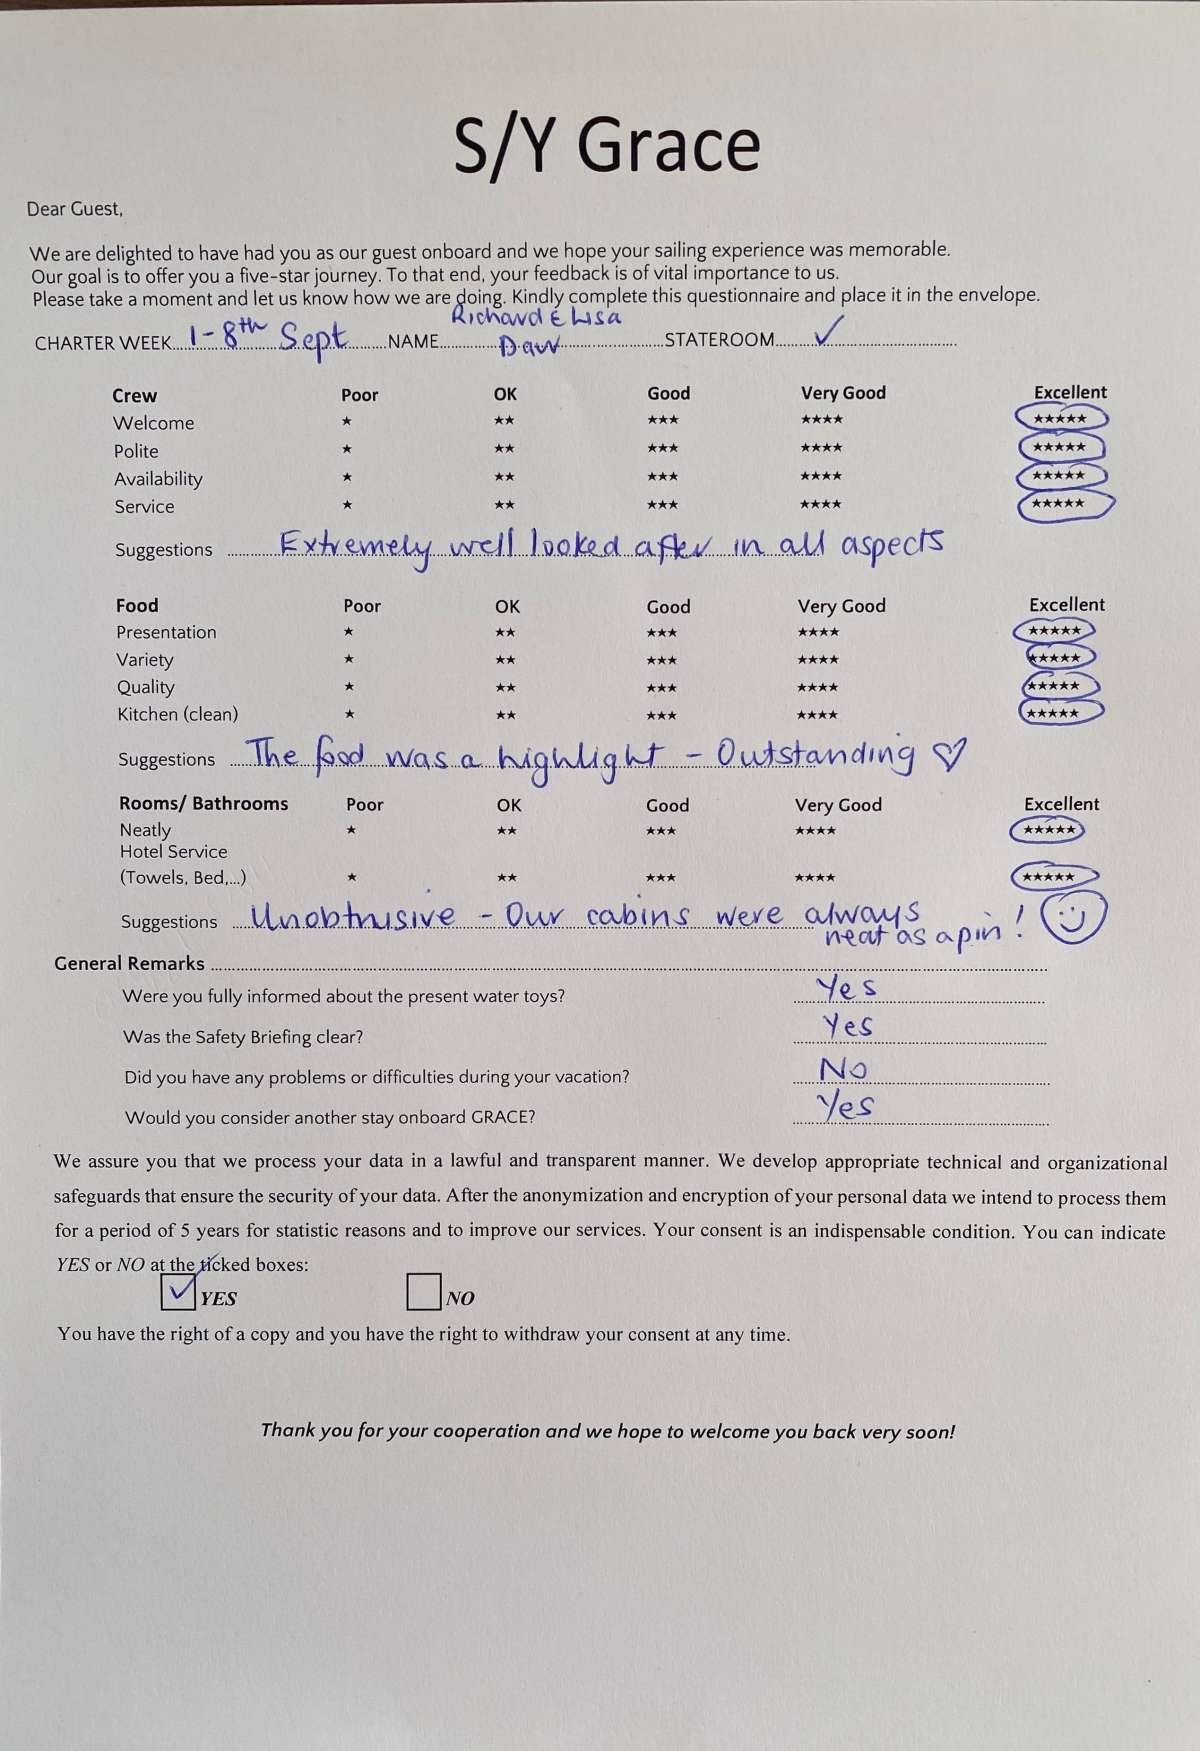 S/Y Grace
Dear Guest,
We are delighted to have had you as our guest onboard and we hope your sailing experience was memorable.
Our goal is to offer you a five-star journey. To that end, your feedback is of vital importance to us.
Please take a moment and let us know how we are doing. Kindly complete this questionnaire and place it in the envelope.
Richard & Lisa
CHARTER WEEK 1-8th Sept NAME Daw STATEROOM ✓
Crew Poor OK Good Very Good Excellent
Welcome ★ ★★ ★★★ ★★★★ ★★★★★
Polite ★ ★★ ★★★ ★★★★ ★★★★★
Availability ★ ★★ ★★★ ★★★★ ★★★★★
Service ★ ★★ ★★★ ★★★★ ★★★★★
Suggestions Extremely well looked after in all aspects
Food Poor OK Good Very Good Excellent
Presentation ★ ★★ ★★★ ★★★★ ★★★★★
Variety ★ ★★ ★★★ ★★★★ ★★★★★
Quality ★ ★★ ★★★ ★★★★ ★★★★★
Kitchen (clean) ★ ★★ ★★★ ★★★★ ★★★★★
Suggestions The food was a highlight - Outstanding ♡
Rooms/ Bathrooms Poor OK Good Very Good Excellent
Neatly ★ ★★ ★★★ ★★★★ ★★★★★
Hotel Service
(Towels, Bed,...) ★ ★★ ★★★ ★★★★ ★★★★★
Suggestions Unobtrusive - Our cabins were always
neat as a pin!
General Remarks
Were you fully informed about the present water toys? Yes
Was the Safety Briefing clear? Yes
Did you have any problems or difficulties during your vacation? No
Would you consider another stay onboard GRACE? Yes
We assure you that we process your data in a lawful and transparent manner. We develop appropriate technical and organizational
safeguards that ensure the security of your data. After the anonymization and encryption of your personal data we intend to process them
for a period of 5 years for statistic reasons and to improve our services. Your consent is an indispensable condition. You can indicate
YES or NO at the ticked boxes:
✓ YES NO
You have the right of a copy and you have the right to withdraw your consent at any time.
Thank you for your cooperation and we hope to welcome you back very soon!